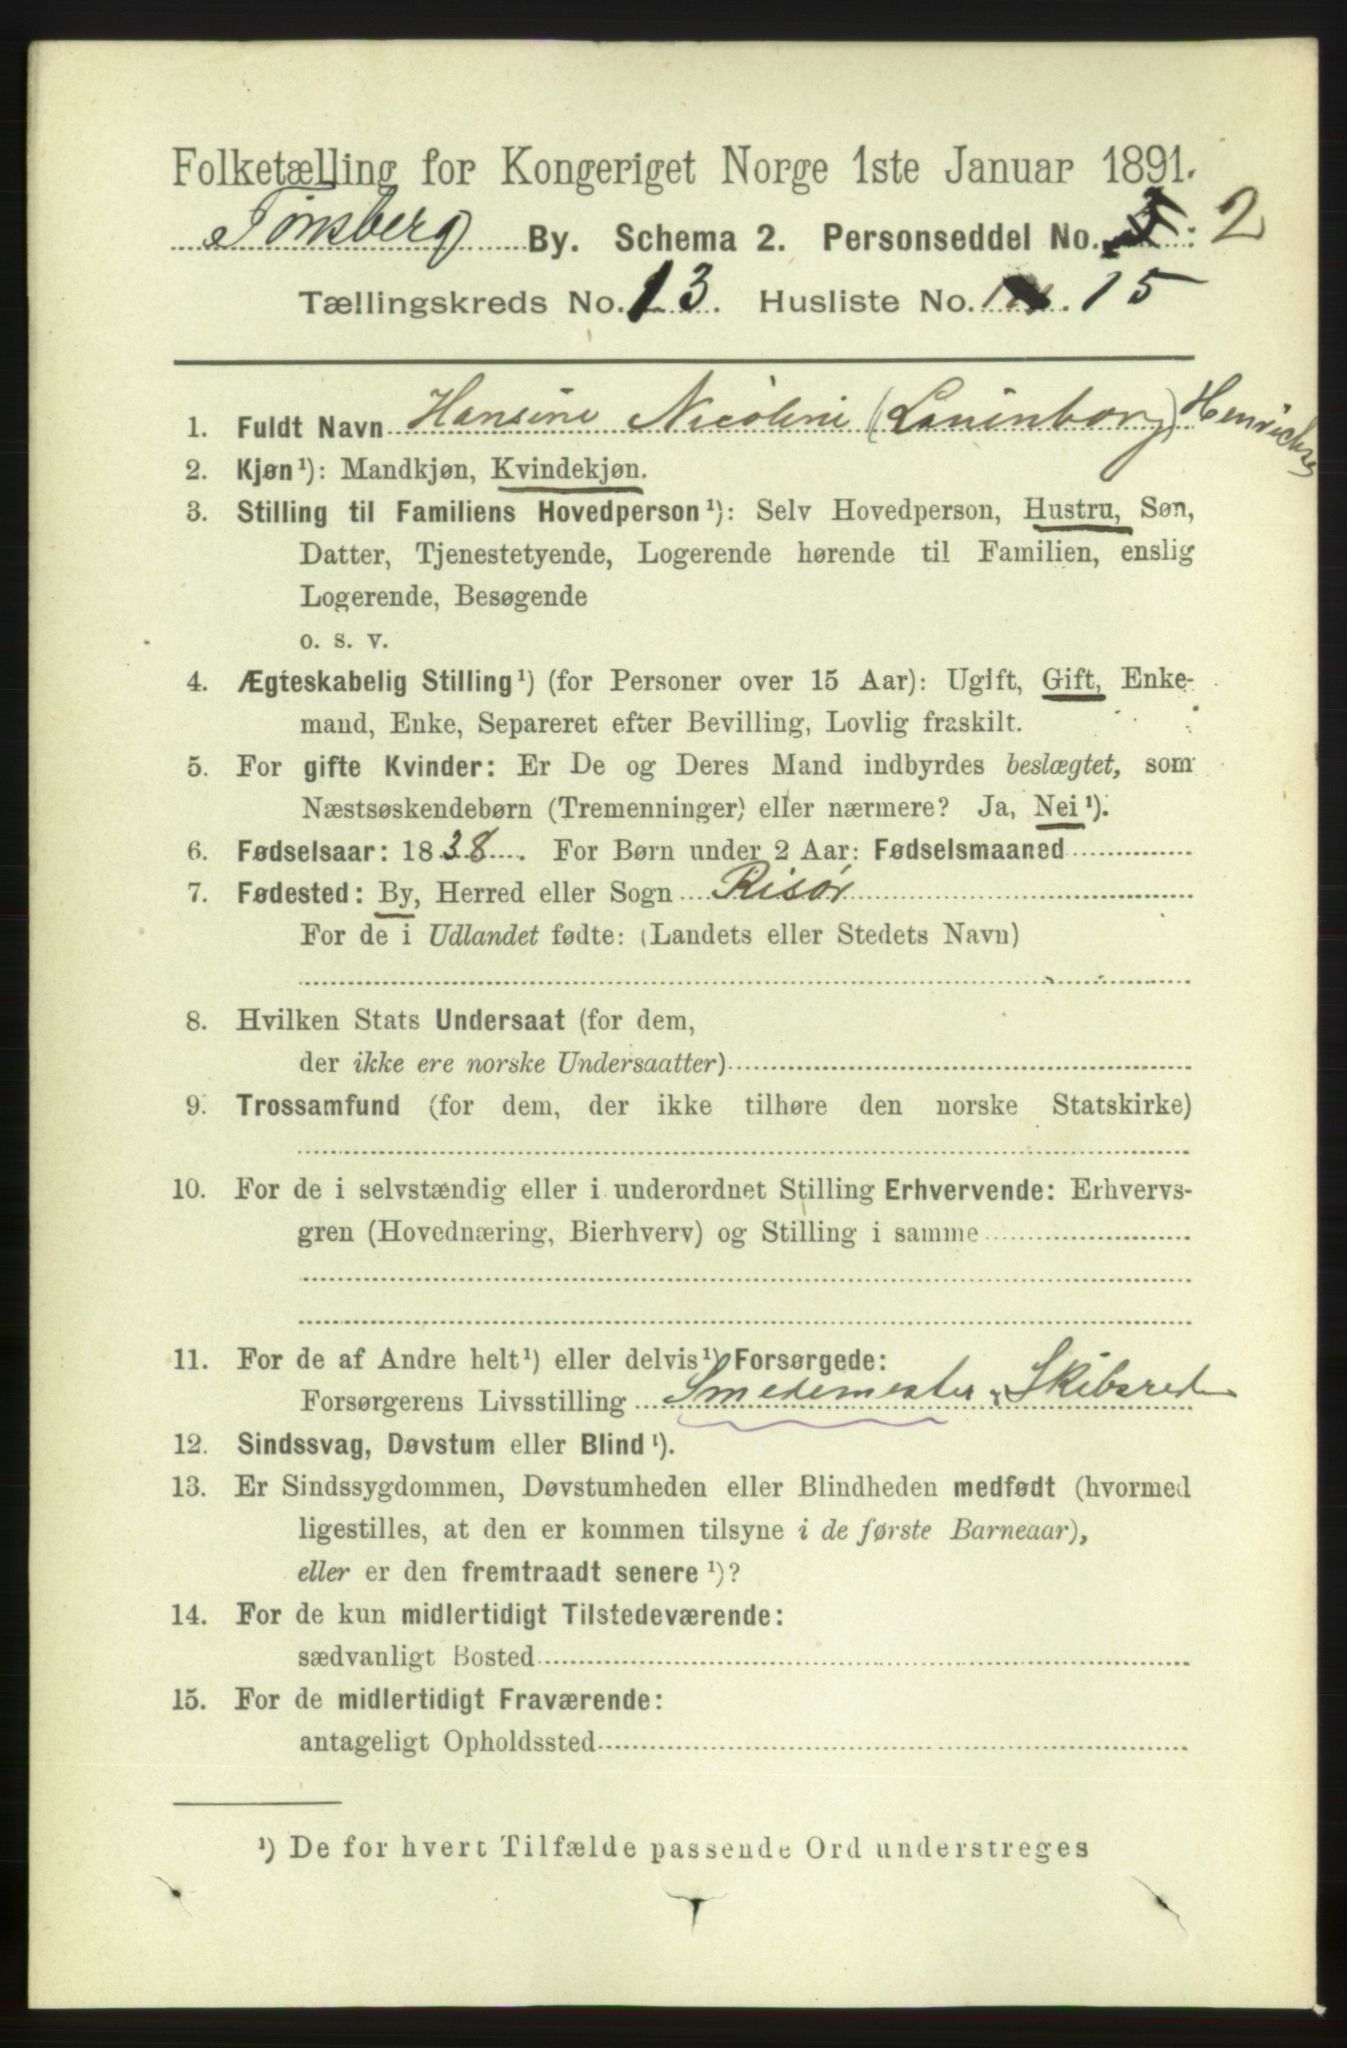 Folketælling for Kongeriget Norge 1ste Januar 1891.
Tønsberg By. Schema 2. Personseddel No. 2
Tællingskreds No. 13. Husliste No. 15
1. Fuldt Navn Hansine Nicoline (Lauinborg) Henrichsen
2. Kjøn¹): Mandkjøn, Kvindekjøn.
3. Stilling til Familiens Hovedperson¹): Selv Hovedperson, Hustru, Søn,
Datter, Tjenestetyende, Logerende hørende til Familien, enslig
Logerende, Besøgende
o. s. v.
4. Ægteskabelig Stilling¹) (for Personer over 15 Aar): Ugift, Gift, Enke-
mand, Enke, Separeret efter Bevilling, Lovlig fraskilt.
5. For gifte Kvinder: Er De og Deres Mand indbyrdes beslægtet, som
Næstsøskendebørn (Tremenninger) eller nærmere? Ja, Nei¹).
6. Fødselsaar: 1838. For Børn under 2 Aar: Fødselsmaaned
7. Fødested: By, Herred eller Sogn Risør
For de i Udlandet fødte: (Landets eller Stedets Navn)
8. Hvilken Stats Undersaat (for dem,
der ikke ere norske Undersaatter)
9. Trossamfund (for dem, der ikke tilhøre den norske Statskirke)
10. For de i selvstændig eller i underordnet Stilling Erhvervende: Erhvervs-
gren (Hovednæring, Bierhverv) og Stilling i samme
11. For de af Andre helt¹) eller delvis¹) Forsørgede:
Forsørgerens Livsstilling Smedemester & Skibsreder
12. Sindssvag, Døvstum eller Blind¹).
13. Er Sindssygdommen, Døvstumheden eller Blindheden medfødt (hvormed
ligestilles, at den er kommen tilsyne i de første Barneaar),
eller er den fremtraadt senere¹)?
14. For de kun midlertidigt Tilstedeværende:
sædvanligt Bosted
15. For de midlertidigt Fraværende:
antageligt Opholdssted
¹) De for hvert Tilfælde passende Ord understreges